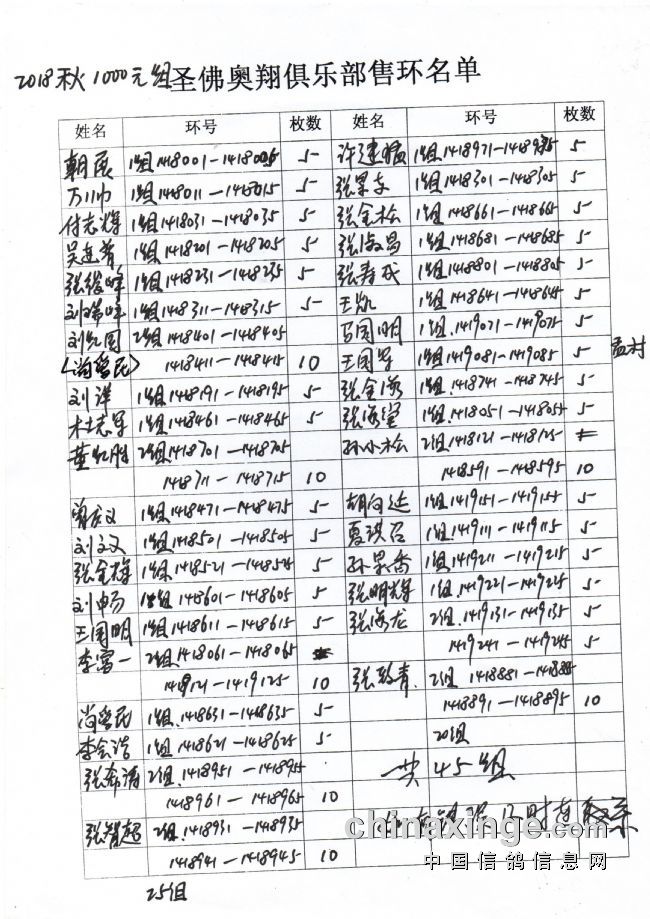 2018秋1000元组圣佛奥翔俱乐部售环名单
姓名 环号 枚数 环号 枚数
朝辰 1组1418001—1418005 5 许建 1组1418971—1418975 5
万川 1组1418011—1418015 5 张 1组1418301—1418305 5
付志辉 1组1418031—1418035 5 张金松 1组1418661—1418665 5
吴连 1组1418201—1418205 5 张淑昌 1组1418681—1418685 5
张俊峰 1组1418231—1418235 5 张春成 1组1418801—1418805 5
刘瑞峰 1组1418311—1418315 5 王凯 1组1418641—1418645 5
刘红国 2组1418401—1418405 马国明 1组1419071—1419075 5
(尚昝民) 1418411—1418415 10 王国军 1组1419081—1419085 5 孟村
刘洋 1组1418191—1418195 5 张金 1组1418741—1418745 5
杜志军 1组1418461—1418465 5 张海 1组1418051—1418055 5
董红胜 2组1418701—1418705 孙小松 2组1418121—1418125
1418711—1418715 10 1418591—1418595 10
1组1418471—1418475 5 胡向达 1组1419151—1419155 5
刘文义 1组1418501—1418505 5 夏洪召 1组1419111—1419115 5
张金梅 1组1418521—1418525 5 孙 1组1419211—1419215 5
刘畅 1组1418601—1418605 5 张明辉 1组1419221—1419225 5
王国明 1组1418611—1418615 5 张海龙 2组1419131—1419135 5
李富一 2组1418061—1418065 1419241—1419245 5
1419121—1419125 10 张致青 2组1418881—1418885
尚昝民 1组1418631—1418635 5 1418891—1418895 10
李会浩 1组1418621—1418625 5 20组
张希涛 2组1418951—1418955 共45组
1418961—1418965 10
张智超 2组1418931—1418935
1418941—1418945 10
25组
chinaxinge.com
中国信鸽信息网